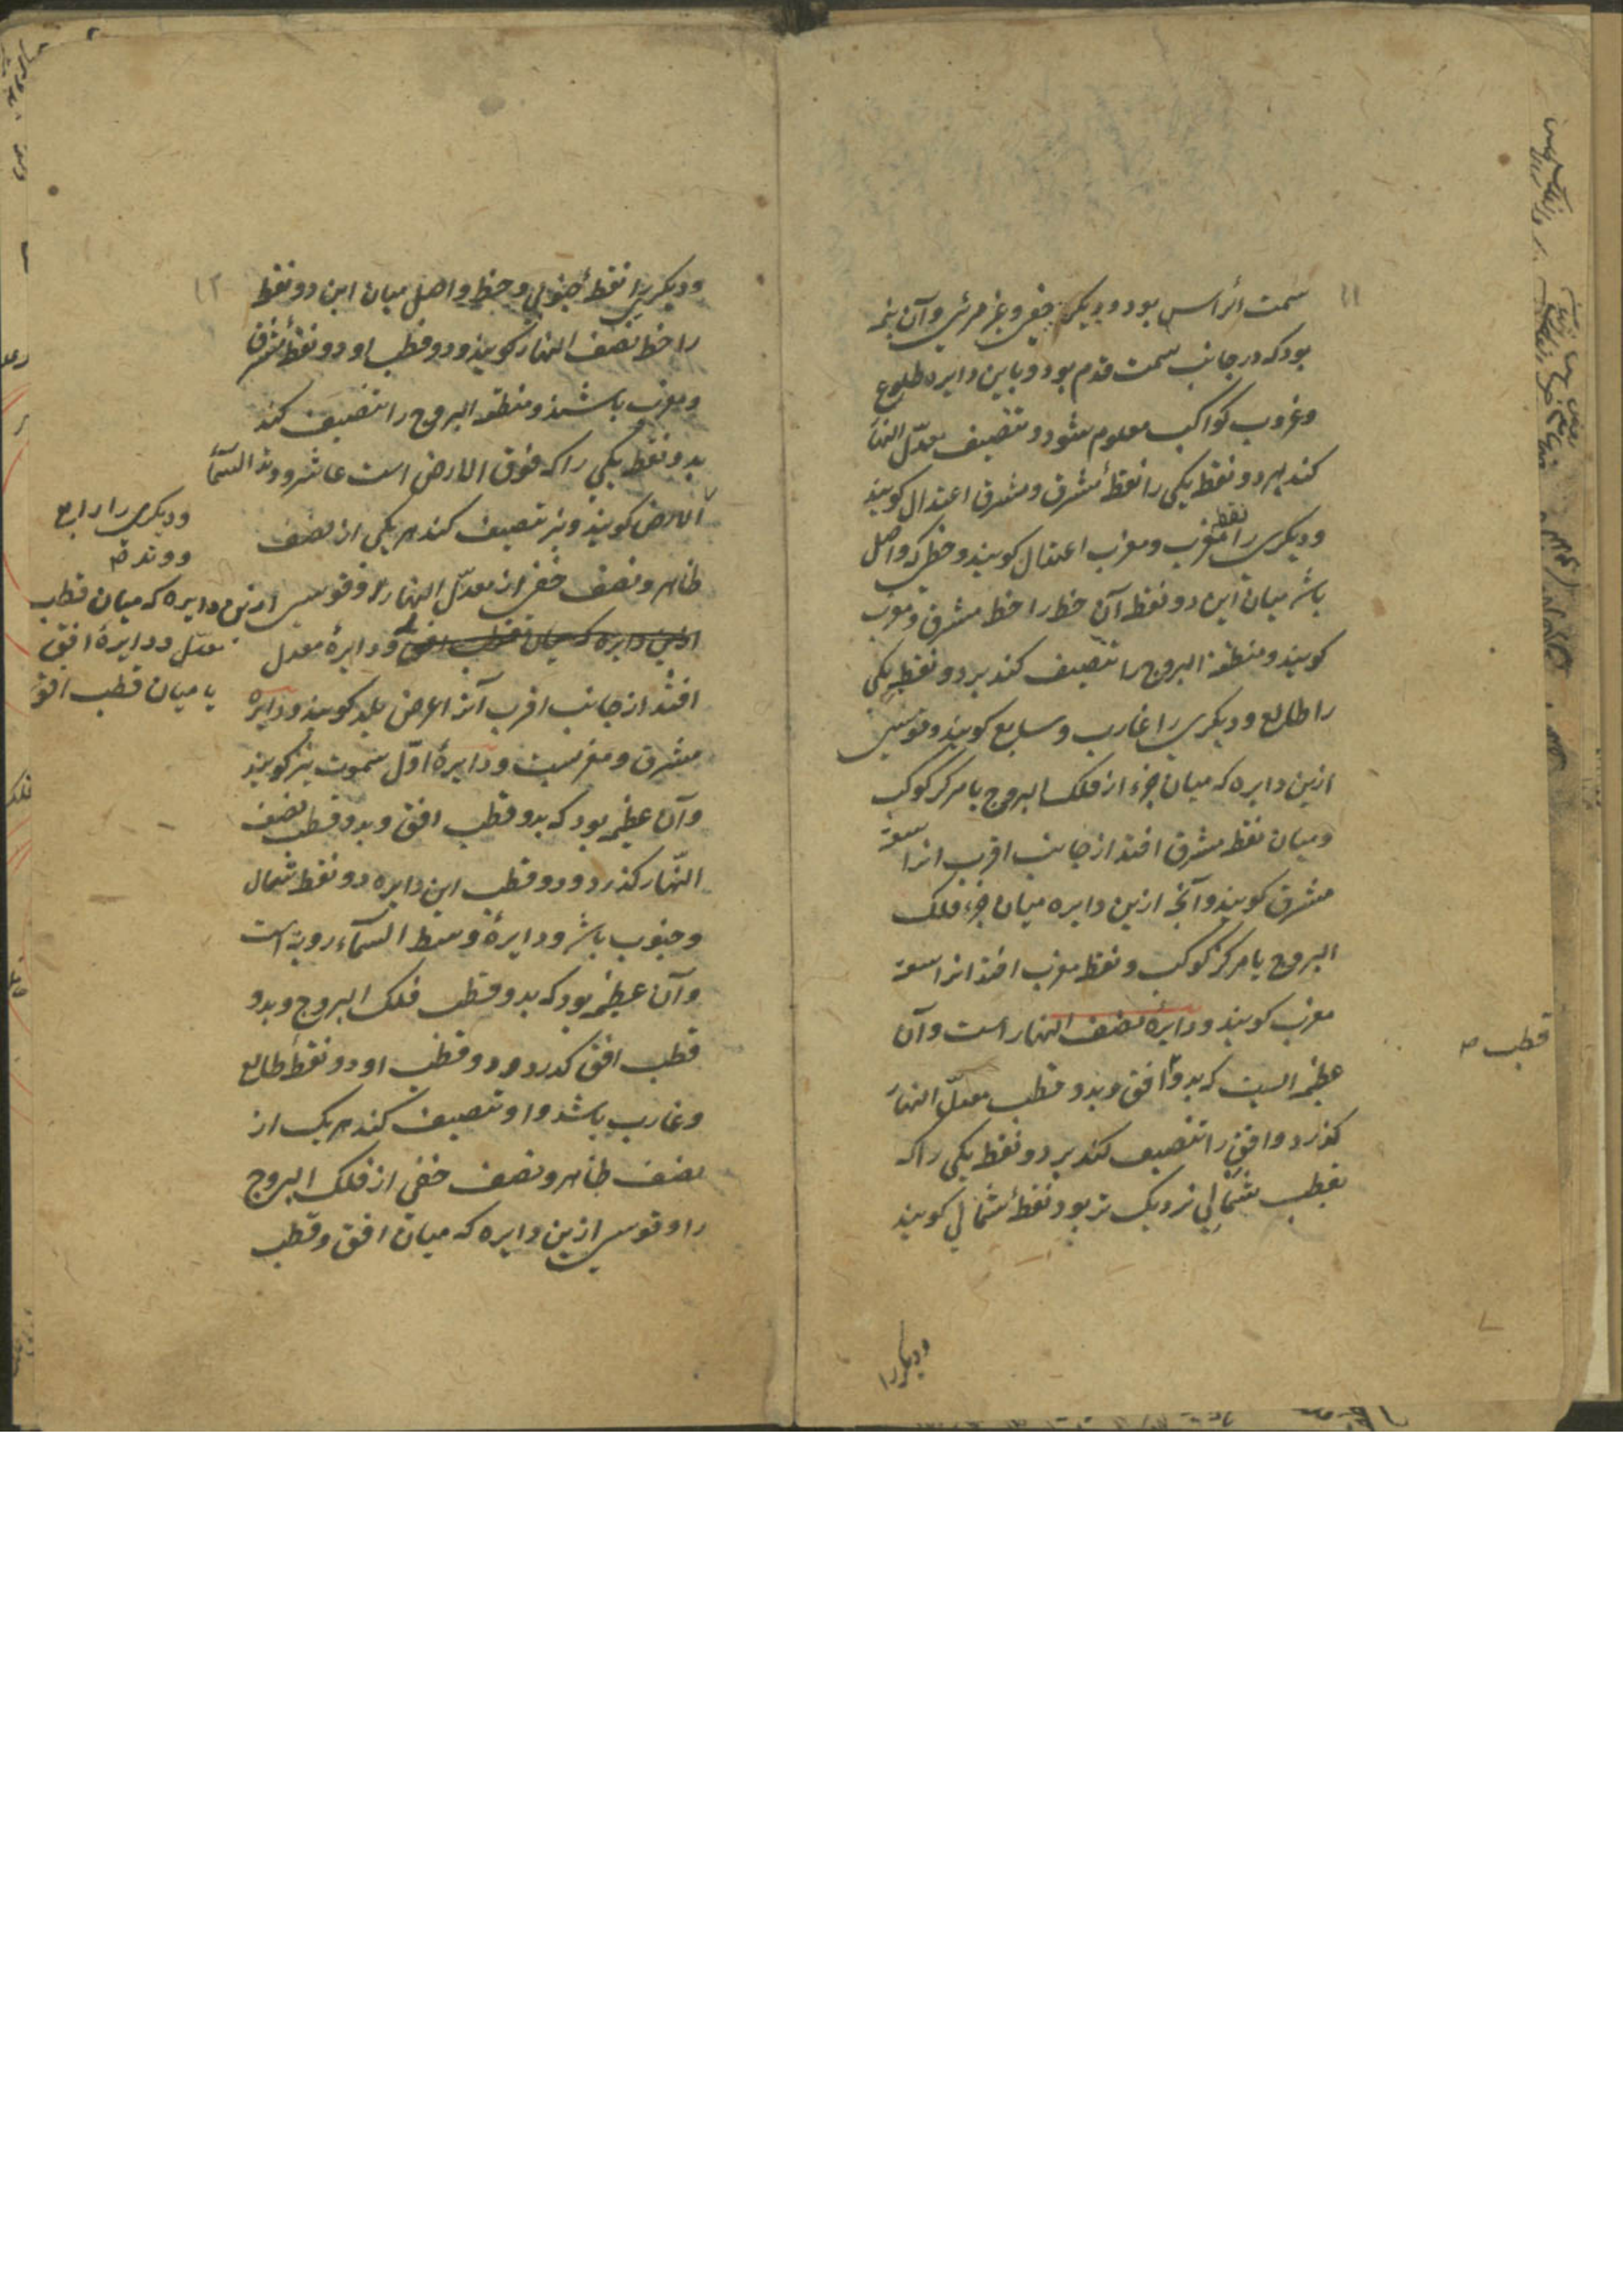 ۱۱
سمت الرأس بود و دیگر خفی و غیر مرئی و آن نیمه
بود که در جانب سمت قدم بود و باین دایره طلوع
و غروب کواکب معلوم شود و تنصیف معدّل النهار
کند بهر دو نقطه یکی را نقطهٔ مشرق و مشرق اعتدال کویند
و دیکری را نقطه مغرب و مغرب اعتدال کویند و خطی که واصل
باشد میان این دو نقطه آن خط را خط مشرق و مغرب
کویند و منطقة البروج را تنصیف کند بر دو نقطه یکی
را طالع و دیکری را غارب و سابع کویند و قوسی
ازین دایره که میان جزء از فلک البروج یا مرکز کوکب
و میان نقطه مشرق افتد از جانب اقرب انرا سعة
مشرق کویند و آنچه ازین دایره میان جزء فلک
البروج یا مرکز کوکب و نقطه مغرب افتد انرا سعة
مغرب کویند و دایرهٔ نصف النهار است و آن
عظیمه ایست که بدو افق و بدو قطب معدّل النهار
قطب صح
کذرد و افق را تنصیف کند بر دو نقطه یکی را که
بقطب شمالی نزدیک تر بود نقطهٔ شمالی کویند
و دیکر را
۱۲
و دیکری را نقطهٔ جنوبی و خط واصل میان این دو نقطه
را خط نصف النهار کویند و دو قطب او دو نقطهٔ مشرق
و مغرب باشند و منطقة البروج را تنصیف کند
بدو نقطه یکی را که فوق الارض است عاشر و وتد السّمآ
و دیکری را رابع
و وتد صح
الارض کویند و نیز تنصیف کند هر یکی از نصف
ظاهر و نصف خفی از معدّل النهار را و قوسی ازین دایره که میان قطب
معدّل و دایرهٔ افق
یا میان قطب افق
ازین دایره که میان قطب افق و دایرهٔ معدل
افتد از جانب اقرب آنرا عرض بلد کویند و دایره
مشرق و مغربست و دایرهٔ اوّل سموت نیز کویند
و آن عظیمه بود که بدو قطب افق و بدو قطب نصف
النّهار کذرد و دو قطب این دایره دو نقطه شمال
و جنوب باشد و دایرهٔ وسط السّمآء رویة است
و آن عظیمه بود که بدو قطب فلک البروج و بدو
قطب افق کذرد و دو قطب او دو نقطهٔ طالع
و غارب باشد و او تنصیف کند هر یک از
نصف ظاهر و نصف خفی از فلک البروج
را و قوسی ازین دایره که میان افق و قطب